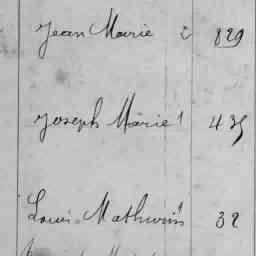 Jean Marie 2 829
Joseph Marie 1 435
Louis Mathurin 1 32